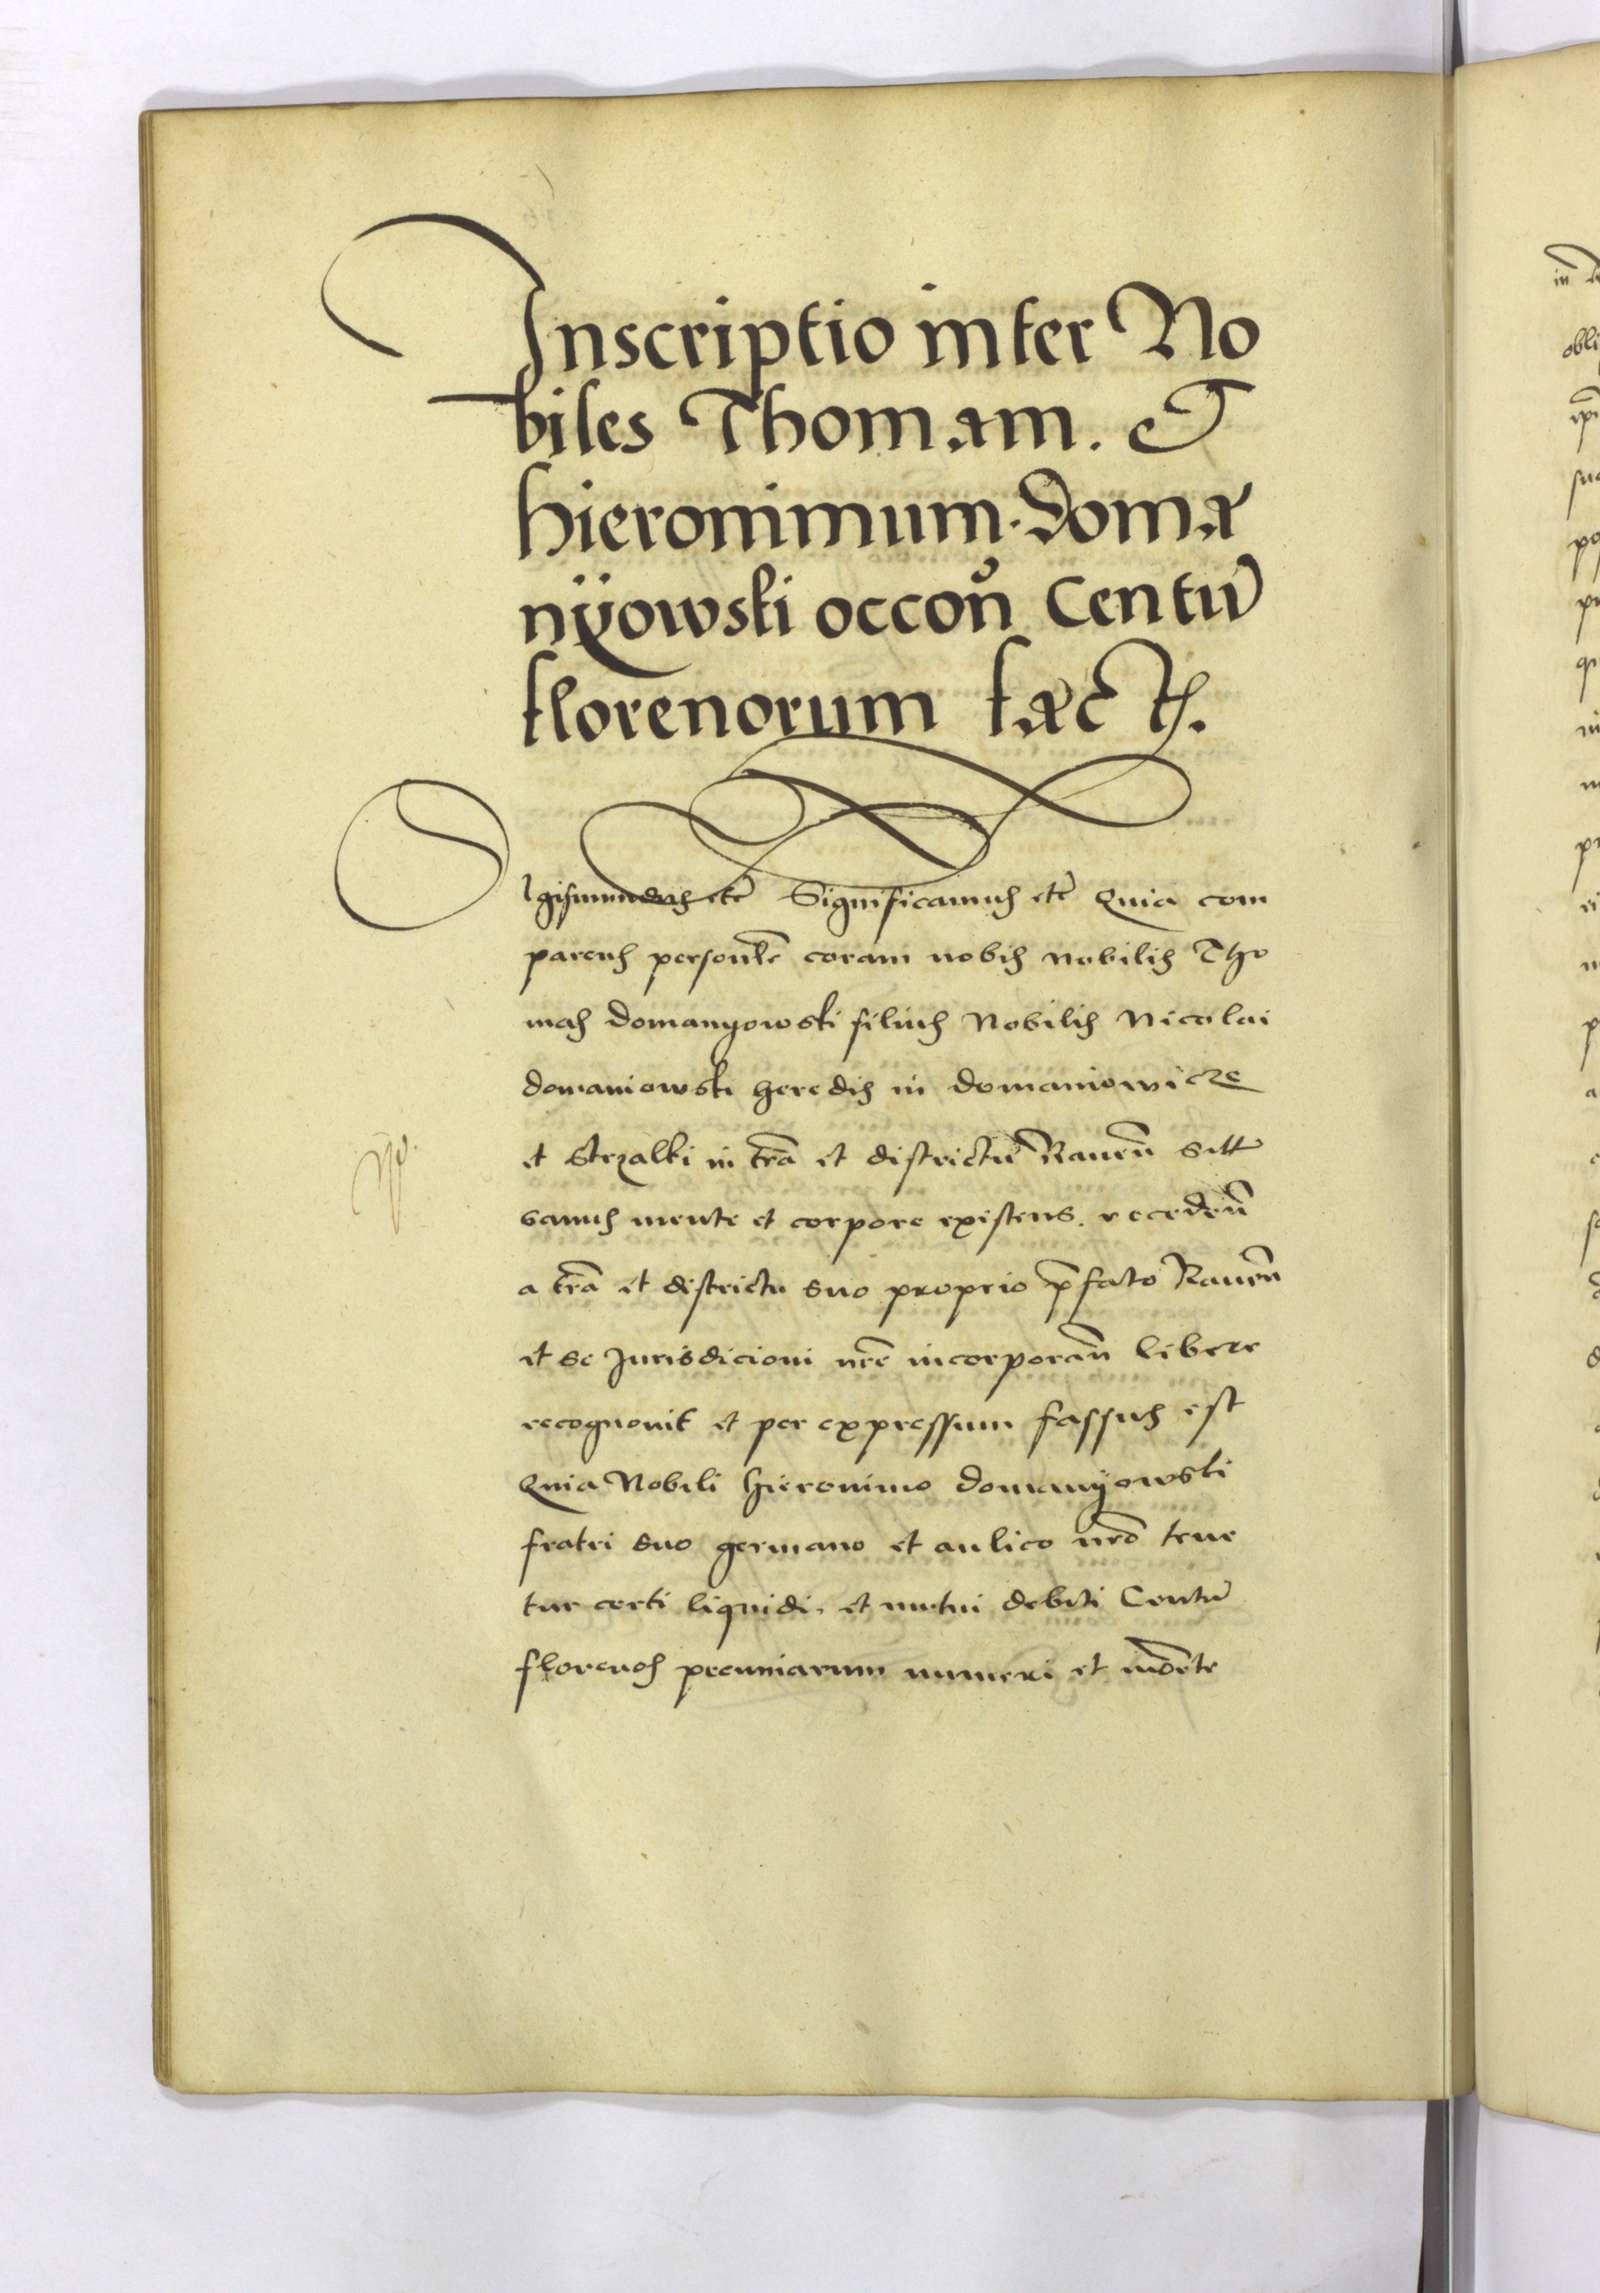 Inscriptio inter No
biles Thomam. et
hieronimum. doma
nÿowski occon̄ Centū
florenorum fact̄
Sigismundus etc̄ Significamus etc̄ Quia com
parens personlr̄ coram nobis Nobilis Tho
mas domanyowski filius Nobilis Nicolai
domaniowski heredis in domaniowicze
et Strzalki in trā et districtu Rauen̄ sitt
sanus mente et corpore existens. receden̄
a trā et districtu suo proprio p̄fato Rauen̄
et se Jurisdicioni nrē incorporan̄ libere
recognouit et per expressum fassus est
Quia Nobili hieronimo domanÿowski
fratri suo germano et aulico nrō tene
tur certi liquidi, et mutui debiti Centū
florenos pecuniarum numeri et monēte
in
obli